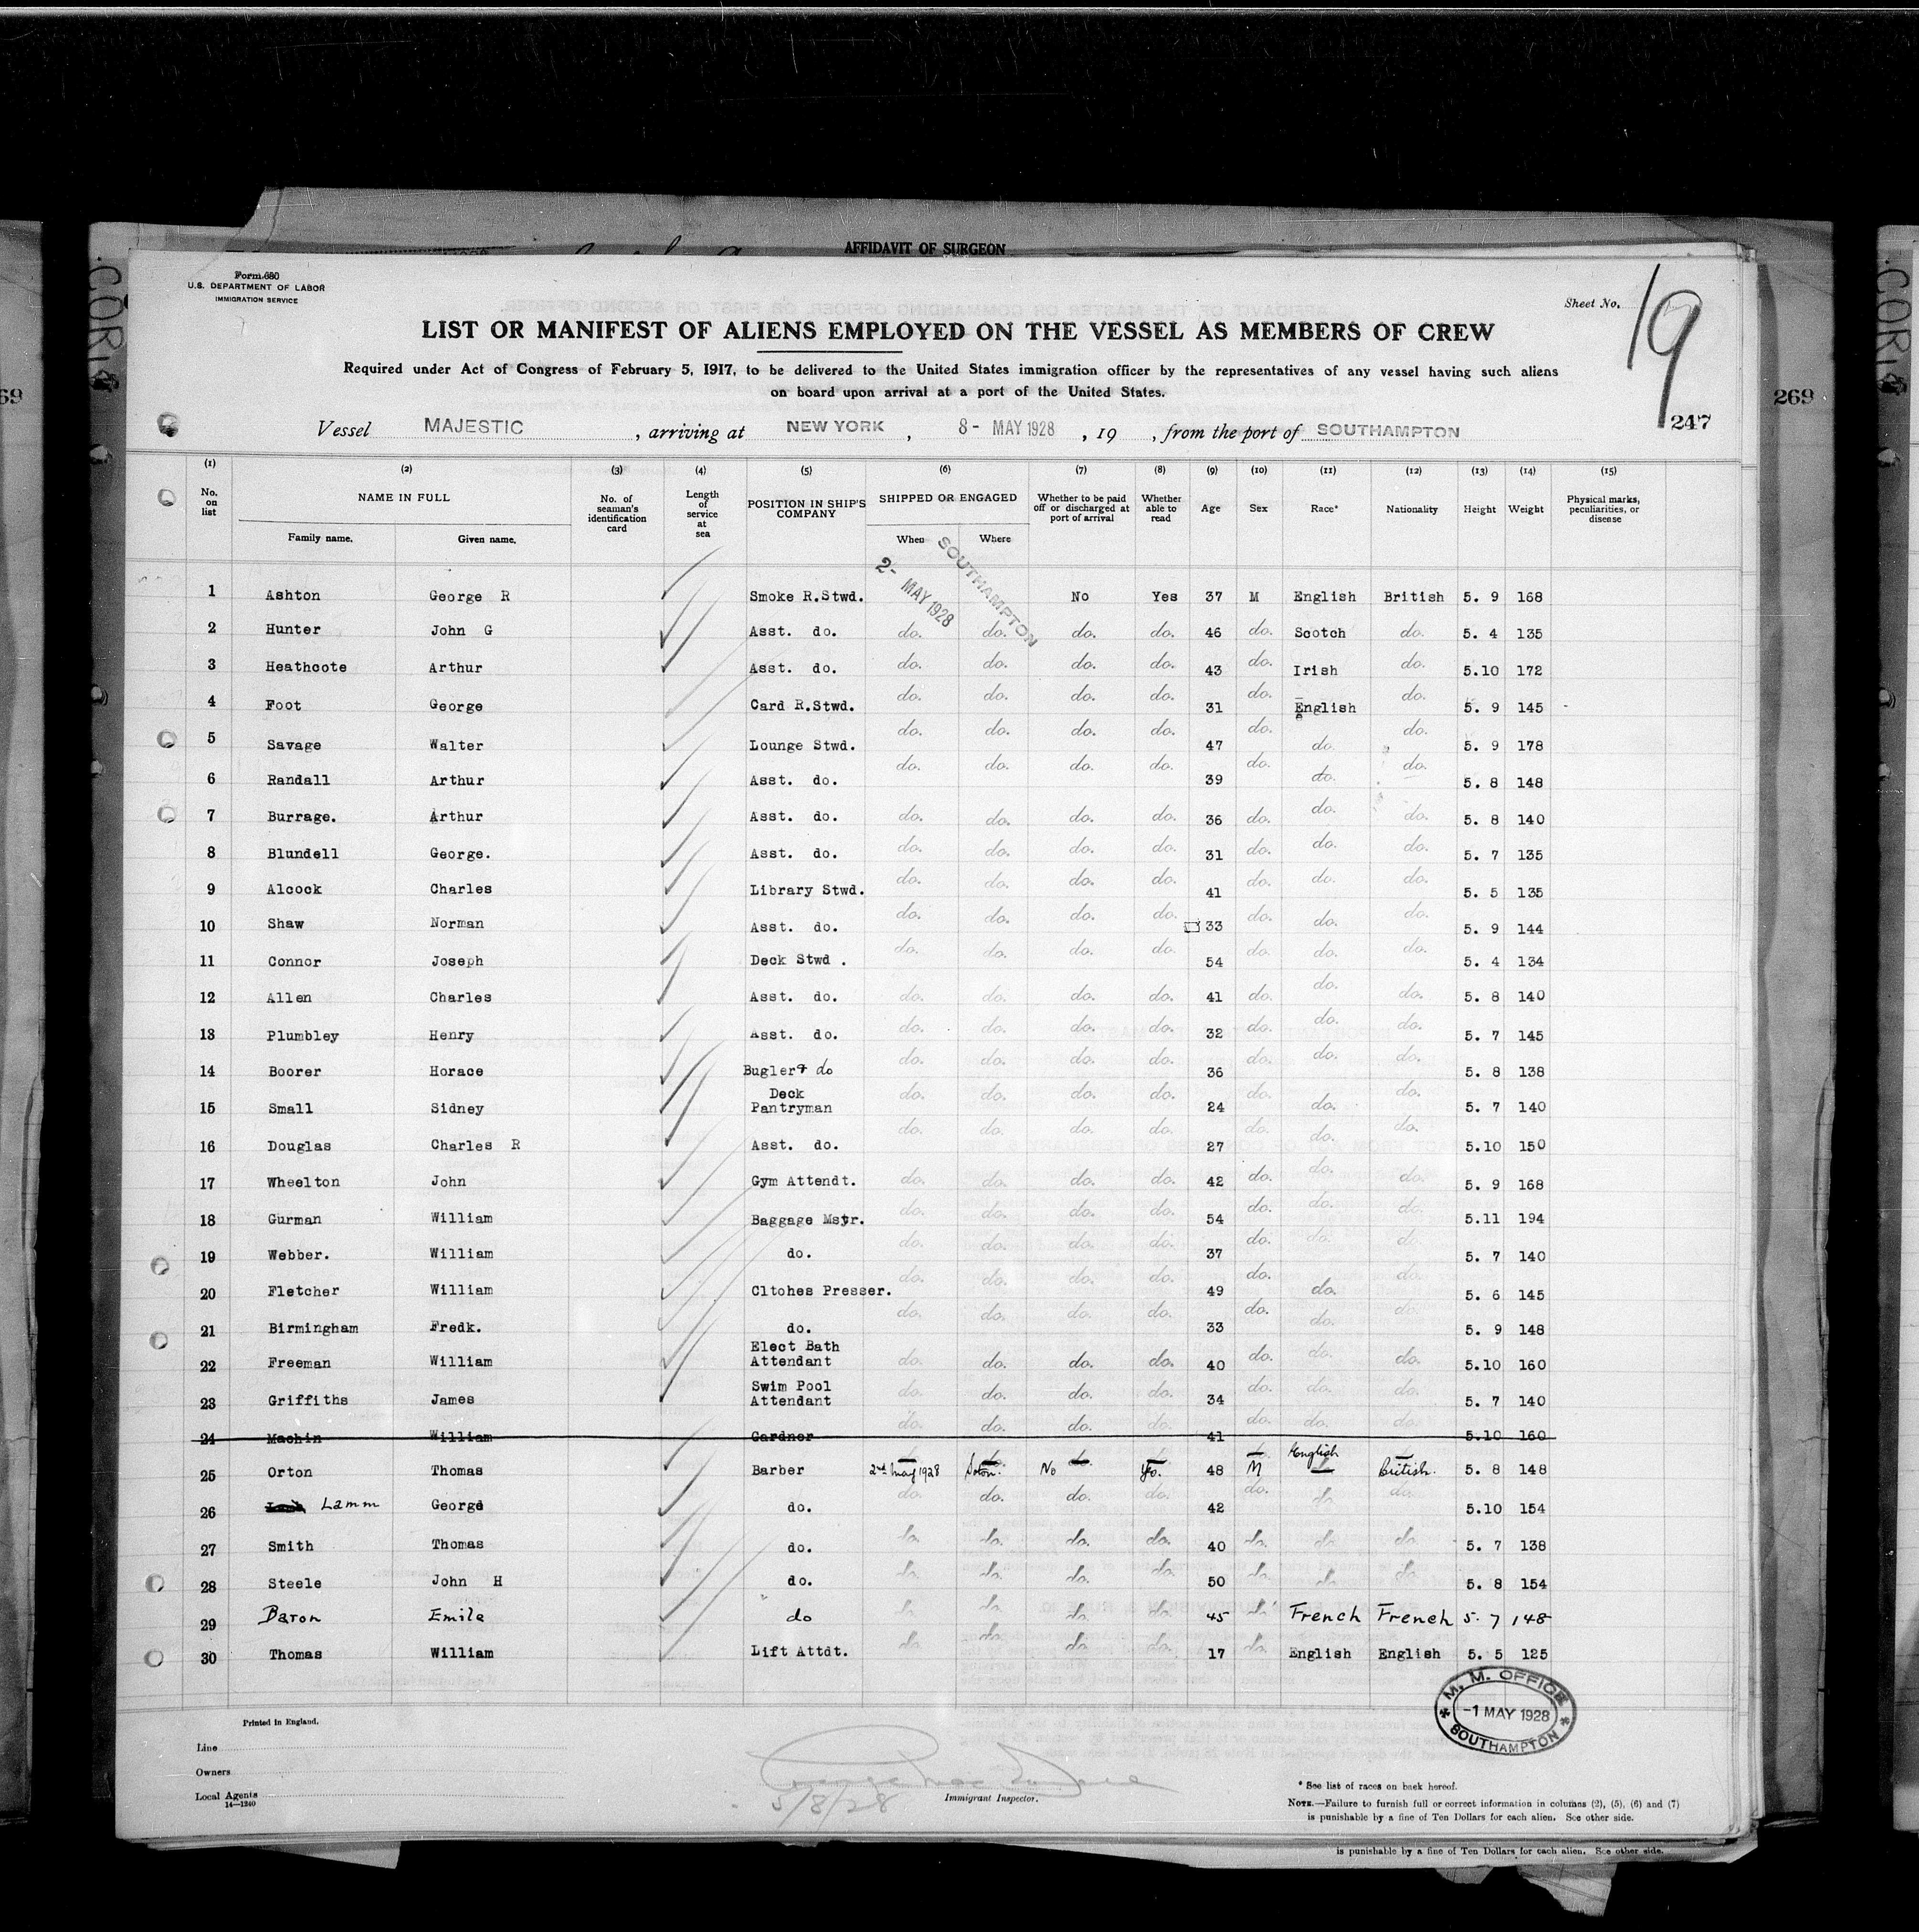 AFFIDAVIT OF SURGEON
Form 680
U.S. DEPARTMENT OF LABOR
IMMIGRATION SERVICE
Sheet No. 19
LIST OR MANIFEST OF ALIENS EMPLOYED ON THE VESSEL AS MEMBERS OF CREW
Required under Act of Congress of February 5, 1917, to be delivered to the United States immigration officer by the representatives of any vessel having such aliens
on board upon arrival at a port of the United States.
269
247
Vessel MAJESTIC, arriving at NEW YORK, 8- MAY 1928, 19 , from the port of SOUTHAMPTON
(1) (2) (3) (4) (5) (6) (7) (8) (9) (10) (11) (12) (13) (14) (15)
No. on list NAME IN FULL Family name. Given name. No. of seaman's identification card Length of service at sea POSITION IN SHIP'S COMPANY SHIPPED OR ENGAGED When Where Whether to be paid off or discharged at port of arrival Whether able to read Age Sex Race* Nationality Height Weight Physical marks, peculiarities, or disease
2- MAY 1928 SOUTHAMPTON
1 Ashton George R Smoke R.Stwd. No Yes 37 M English British 5. 9 168
2 Hunter John G Asst. do. do. do. do. do. 46 do. Scotch do. 5. 4 135
3 Heathcote Arthur Asst. do. do. do. do. do. 43 do. Irish do. 5.10 172
4 Foot George Card R.Stwd. do. do. do. do. 31 do. English do. 5. 9 145
5 Savage Walter Lounge Stwd. do. do. do. do. 47 do. do. do. 5. 9 178
6 Randall Arthur Asst. do. do. do. do. do. 39 do. do. do. 5. 8 148
7 Burrage. Arthur Asst. do. do. do. do. do. 36 do. do. do. 5. 8 140
8 Blundell George. Asst. do. do. do. do. do. 31 do. do. do. 5. 7 135
9 Alcock Charles Library Stwd. do. do. do. do. 41 do. do. do. 5. 5 135
10 Shaw Norman Asst. do. do. do. do. do. 33 do. do. do. 5. 9 144
11 Connor Joseph Deck Stwd . do. do. do. do. 54 do. do. do. 5. 4 134
12 Allen Charles Asst. do. do. do. do. do. 41 do. do. do. 5. 8 140
13 Plumbley Henry Asst. do. do. do. do. do. 32 do. do. do. 5. 7 145
14 Boorer Horace Bugler & do do. do. do. do. 36 do. do. do. 5. 8 138
15 Small Sidney Deck Pantryman do. do. do. do. 24 do. do. do. 5. 7 140
16 Douglas Charles R Asst. do. do. do. do. do. 27 do. do. do. 5.10 150
17 Wheelton John Gym Attendt. do. do. do. do. 42 do. do. do. 5. 9 168
18 Gurman William Baggage Mstr. do. do. do. do. 54 do. do. do. 5.11 194
19 Webber. William do. do. do. do. do. 37 do. do. do. 5. 7 140
20 Fletcher William Cltohes Presser. do. do. do. do. 49 do. do. do. 5. 6 145
21 Birmingham Fredk. do. do. do. do. do. 33 do. do. do. 5. 9 148
22 Freeman William Elect Bath Attendant do. do. do. do. 40 do. do. do. 5.10 160
23 Griffiths James Swim Pool Attendant do. do. do. do. 34 do. do. do. 5. 7 140
24 Machin William Gardner do. do. do. do. 41 do. do. do. 5.10 160
25 Orton Thomas Barber 2nd May 1928 Soton. No Yes. 48 M English British. 5. 8 148
26 Lamm George do. do. do. do. do. 42 do. do do. 5.10 154
27 Smith Thomas do. do. do. do. do. 40 do. do do. 5. 7 138
28 Steele John H do. do. do. do. do. 50 do. do do. 5. 8 154
29 Baron Emile do do. do. do. do. 45 do. French French 5. 7 148
30 Thomas William Lift Attdt. do. do. do. do. 17 do. English English 5. 5 125
M. M. OFFICE
-1 MAY 1928
SOUTHAMPTON
Printed in England.
Line
Owners
Local Agents
14—1240
5/8/28
Immigrant Inspector.
* See list of races on back hereof.
NOTE.—Failure to furnish full or correct information in columns (2), (5), (6) and (7)
is punishable by a fine of Ten Dollars for each alien. See other side.
is punishable by a fine of Ten Dollars for each alien. See other side.